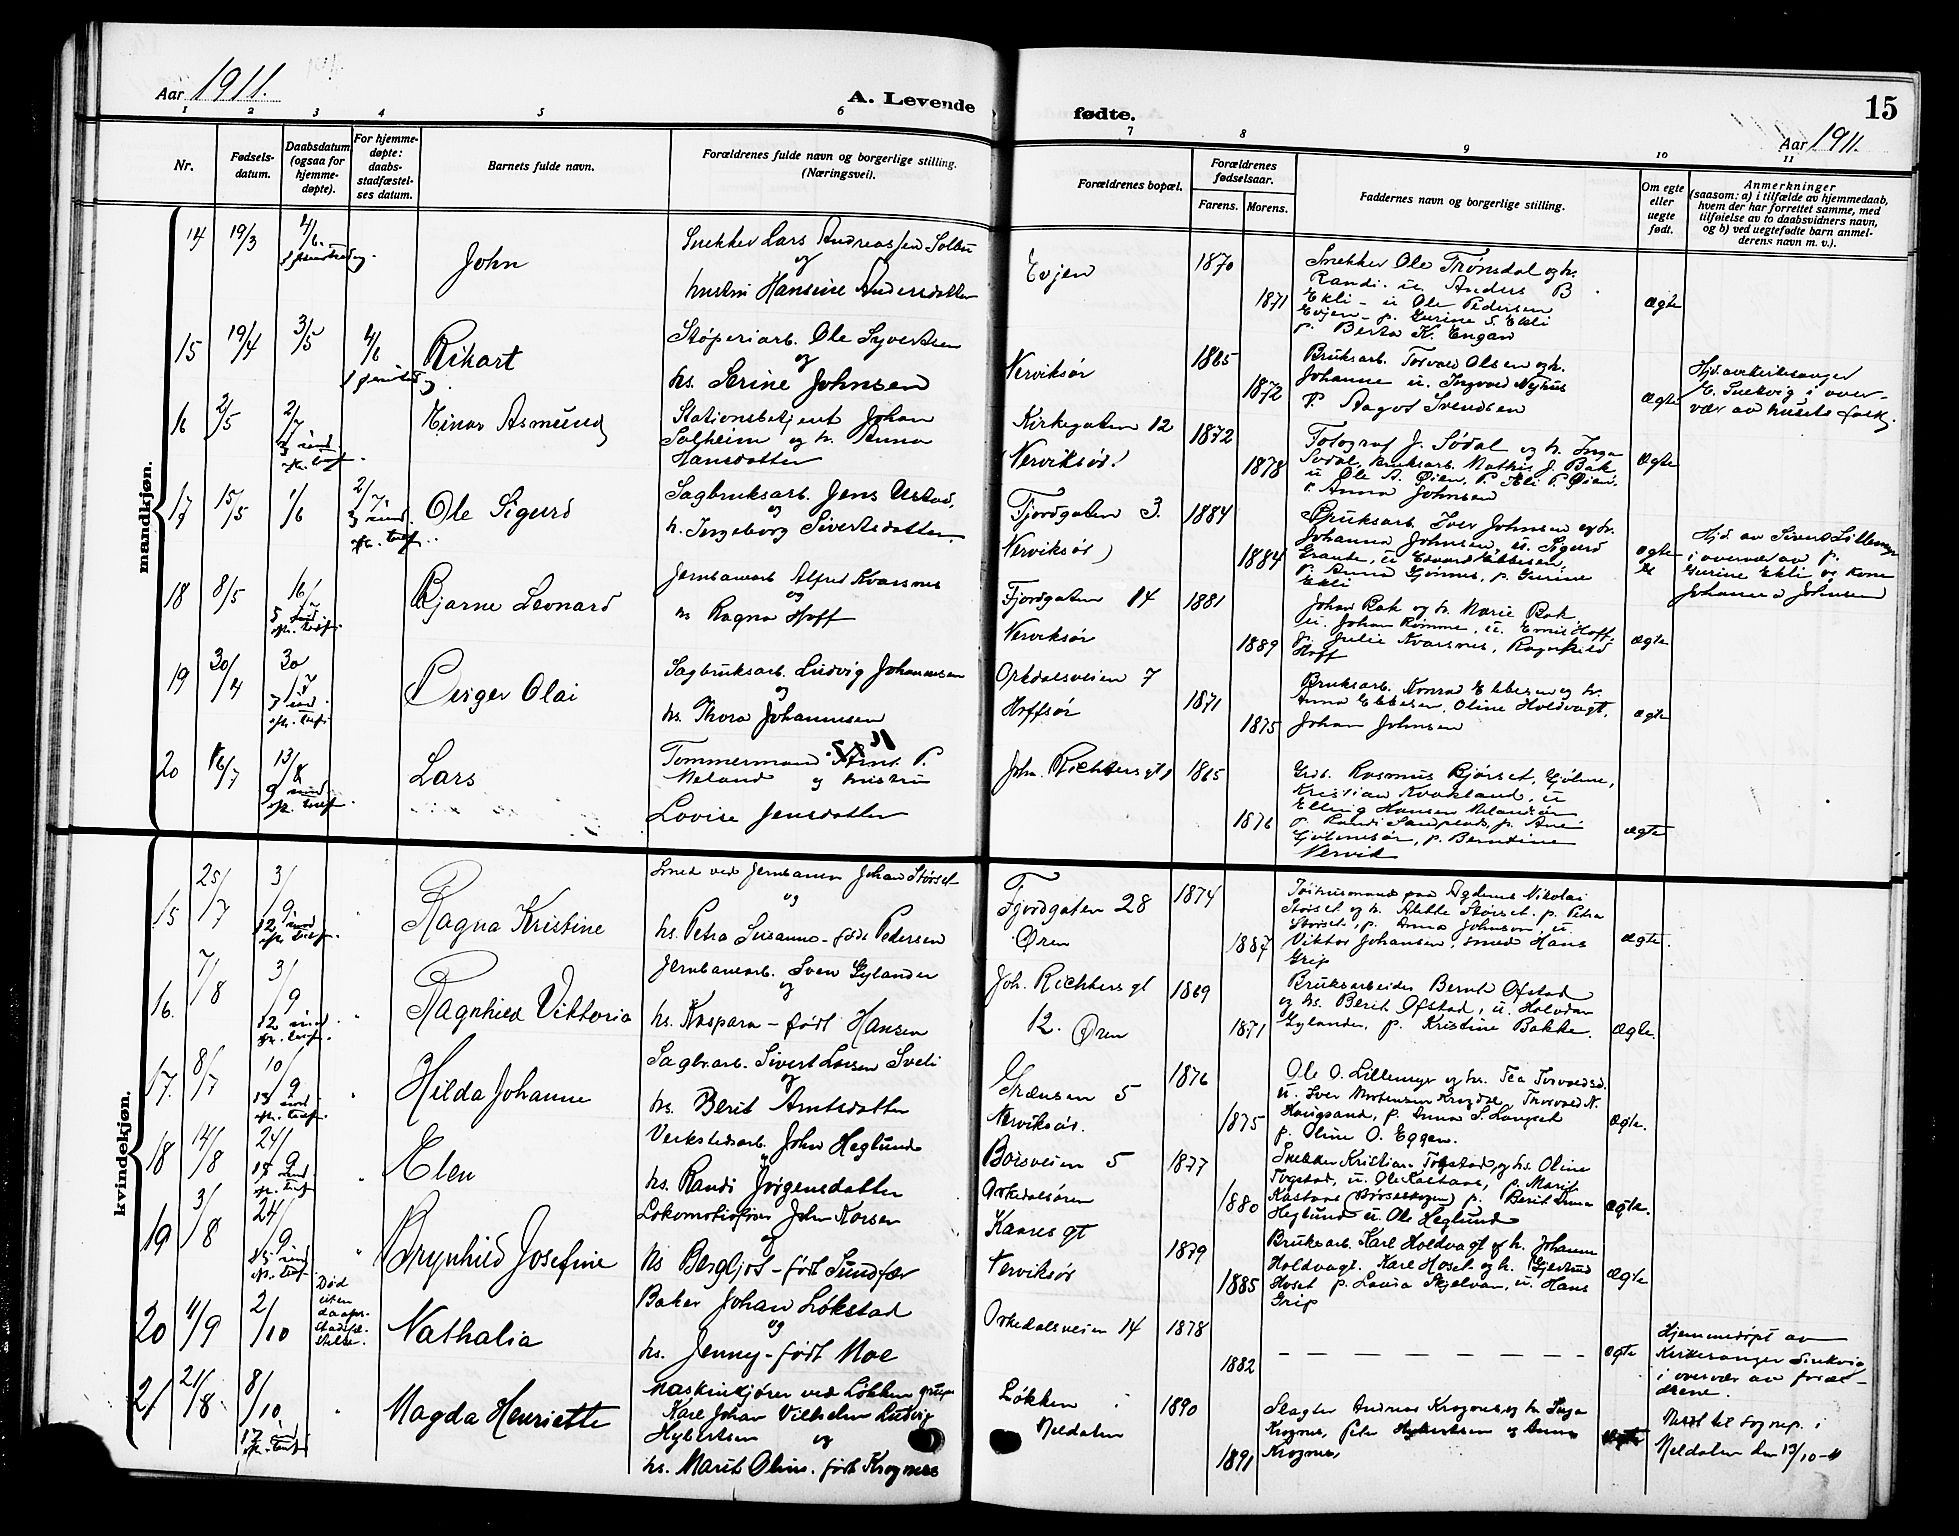 Aar 1911.
A. Levende fødte.
15
Aar 1911.
1 2 3 4 5 6 7 8 9 10 11
Nr.
Fødsels-
datum.
Daabsdatum
(ogsaa for
hjemme-
døpte).
For hjemme-
døpte:
daabs-
stadfæstel-
ses datum.
Barnets fulde navn.
Forældrenes fulde navn og borgerlige stilling.
(Næringsvei).
Forældrenes bopæl.
Forældrenes
fødselsaar.
Farens. Morens.
Faddernes navn og borgerlige stilling.
Om egte
eller
uegte
født.
Anmerkninger
(saasom: a) i tilfælde av hjemmedaab,
hvem der har forrettet samme, med
tilføielse av to daabsvidners navn,
og b) ved uegtefødte barn anmel-
derens navn m. v.).
mandkjøn.
14 19/3 4/6. John
Snekker Lars Andreassen Solbu
og
hustru Hansine Andersdatter
Evjen 1870 1871
Snekker Ole Trønsdal og h.
Randi. u Anders B
Ekli - u Ole Pedersen
Evjen - p. Gurine S. Ekli
p. Berta K. Engan
ægte
15 19/4 3/5 4/6 Rikart
Støperiarb. Ole Syvertsen
og
hs. Serine Johnsen
Nerviksør 1865 1872
Bruksarb. Torvald Olsen og h.
Johanne u. Ingvald Nyhus
P. Aagot Svendsen
ægte
Hjd. av kirkesanger
E. Snekvig i over-
vær av husets folk.
16 2/5 2/7 Einar Asmund
Stationsbetjent Johan
Solheim og h. Anna
Hansdatter
Kirkegaten 12
(Nerviksør) 1872 1878
Fotograf J. Sødal og h. Inga
Sødal, bruksarb. Mathis J. Bak
u Ole A. Øien, P. Eli P. Øien.
P. Anna Johnsen
ægte
17 15/5 1/6 2/7 Ole Sigurd
Sagbruksarb. Jens Ustad,
og
h. Ingeborg Sivertsdatter.
Fjordgaten 3.
Nerviksør) 1884 1884
Bruksarb. Iver Johnsen og h.
Johanna Johnsen, u. Sigurd
Grande, u Edvard Ebbesen,
p. Anna Gjønnes, p. Gurine
Ekli
ægte
Hjd. av Sivert Lillemyr
i overvær av p.
Gurine Ekli og kone
Johanna Johnsen
18 8/5 16/7 Bjarne Leonard
Jernbanearb Alfred Kvasnes
og
hs Ragna Hoff
Fjordgaten 14
Nerviksør 1881 1889
Johan Bak og h. Marie Bak,
u. Johan Rømme, u. Emil Hoff,
p. Julie Kvasnes, Ragnhild
Hoff
ægte
19 30/4 30/7 Birger Olai
Sagbruksarb. Ludvig Johannesen
og
hs. Thora Johannesen
Orkdalsveien 7
Hoffsør 1871 1875
Bruksarb. Konrad Ebbesen og h.
Anna Ebbesen, Oline Holdvagt,
Johan Johnsen
ægte
20 16/7 13/8 Lars
Tømmermand Arnt P.
Meland og hustru
Lovise Jensdatter
Joh. Richters gt 1865 1876
Grdb. Rasmus Bjørset, Gjølme,
Kristian Kvakland, u
Elling Hansen Melandsør
P. Randi Sandstad, p. Ane
Gjølmesør, p. Berntine
Nervik
ægte
kvindekjøn.
15 25/7 3/9 Ragna Kristine
Smed ved Jernbanen Johan Størset
og
hs. Petra Susanna - født Pedersen
Fjordgaten 28
Øren 1874 1887
Tøihusmand paa Agdenes Nikolai
Størset og h. Alette Størset. p. Petra
Størset, p. Anna Johnsen, u
Viktor Johansen, smed Hans
Grip
ægte.
16. 7/8 3/9 Ragnhild Viktoria
Jernbanearb. Sven Gylander
og
hs. Kaspara - født Hansen
Joh. Richters gt
12. Øren 1869 1871
Bruksarbeider Bernt Ofstad
og hs. Berit Ofstad, u. Halvdan
Gylander, p. Kristine Bakke.
ægte.
17. 8/7 10/9 Hilda Johanne
Sagbr.arb. Sivert Larsen Sveli
og
hs. Berit Arntsdatter
Grænsen 5
Nerviksør. 1876 1875
Ole O. Lillemyr og hs. Tea Torvaldsd.
u. Iver Mortensen Krogdal, Thorvald N.
Haugsand, p. Anna S. Langset
p. Oline O. Eggen.
ægte.
18 14/8 24/9 Elen
Verkstedsarb. John Heglund
hs. Randi Jørgensdatter
Borsveien 5
Orkedalsøren 1877 1880
Snekker Kristian Togstad, og hs. Oline
Togstad, u. Ole Kastaas, p. Marit
Kastaas (Børseskogen) p. Berit Anna
Heglund u. Ole Heglund
ægte.
19 3/8 24/9 Brynhild Josefine
Lokomotivfører John Korsen
og
hs Bergljot - født Sundfær
Kaares gt
Nerviksør 1879 1885
Bruksarb. Karl Holdvagt og h. Johanna
Holdvagt. Karl Hoset og h. Gjertrud
Hoset p. Laura Skjelvan, u. Hans
Grip
ægte
20 4/9 2/10 Død
uten
daabs-
stadfæ-
stelse. Nathalia
Baker Johan Løkstad
og
hs. Jenny - født Moe
Orkedalsveien 14 1878 1882
ægte
Hjemmedøpt av
Kirkesanger Snekvig
i overvær av foræl-
drene.
21 21/8 8/10 Magda Henriette
Maskinkjører ved Løkken grupe
Karl Johan Vilhelm Ludvig
Hybertsen og
hs. Marit Olina. født Krognes
Løkken
Meldalen 1890 1891
Slagter Andreas Krognes og h. Inga
Krognes, Peter Hybertsen og Anna
Krognes,
Meldt til sognep. i
Meldalen den 13/10-11